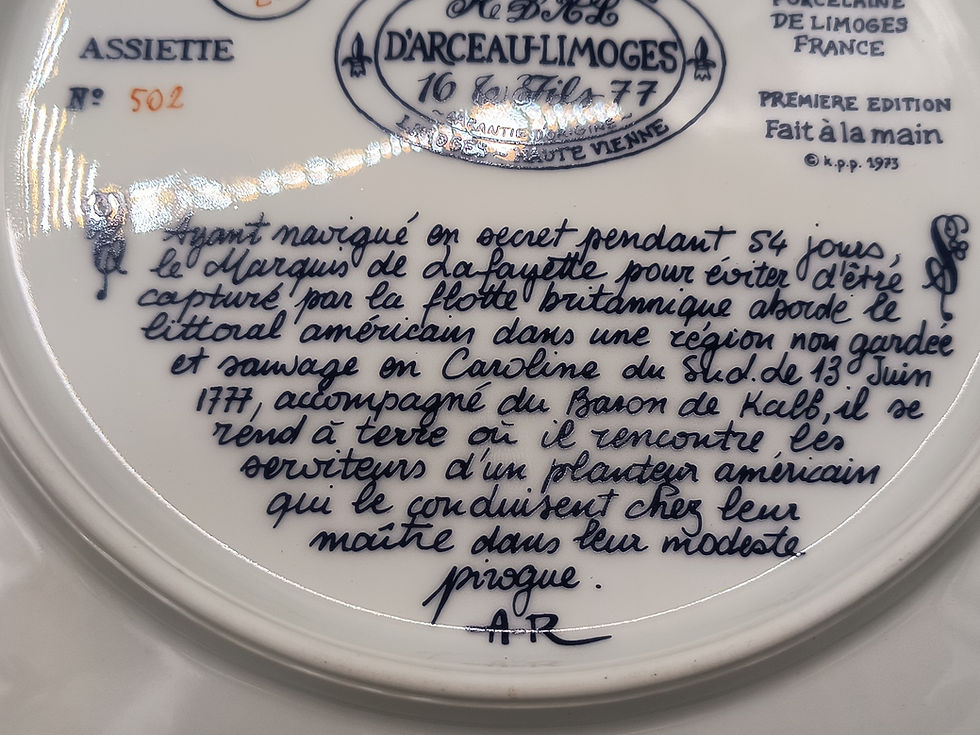 PORCELAINE
DE LIMOGES
FRANCE
ASSIETTE
Nº 502
D'ARCEAU-LIMOGES
16 & Fils 77
GARANTIE D'ORIGINE
LIMOGES - HAUTE VIENNE
PREMIERE EDITION
Fait à la main
© k.p.p. 1973
Ayant navigué en secret pendant 54 jours,
le Marquis de Lafayette pour éviter d'être
capturé par la flotte britannique aborde le
littoral américain dans une région non gardée
et sauvage en Caroline du Sud. de 13 Juin
1777, accompagné du Baron de Kalb, il se
rend à terre où il rencontre les
serviteurs d'un planteur américain
qui le conduisent chez leur
maître dans leur modeste
pirogue.
AR